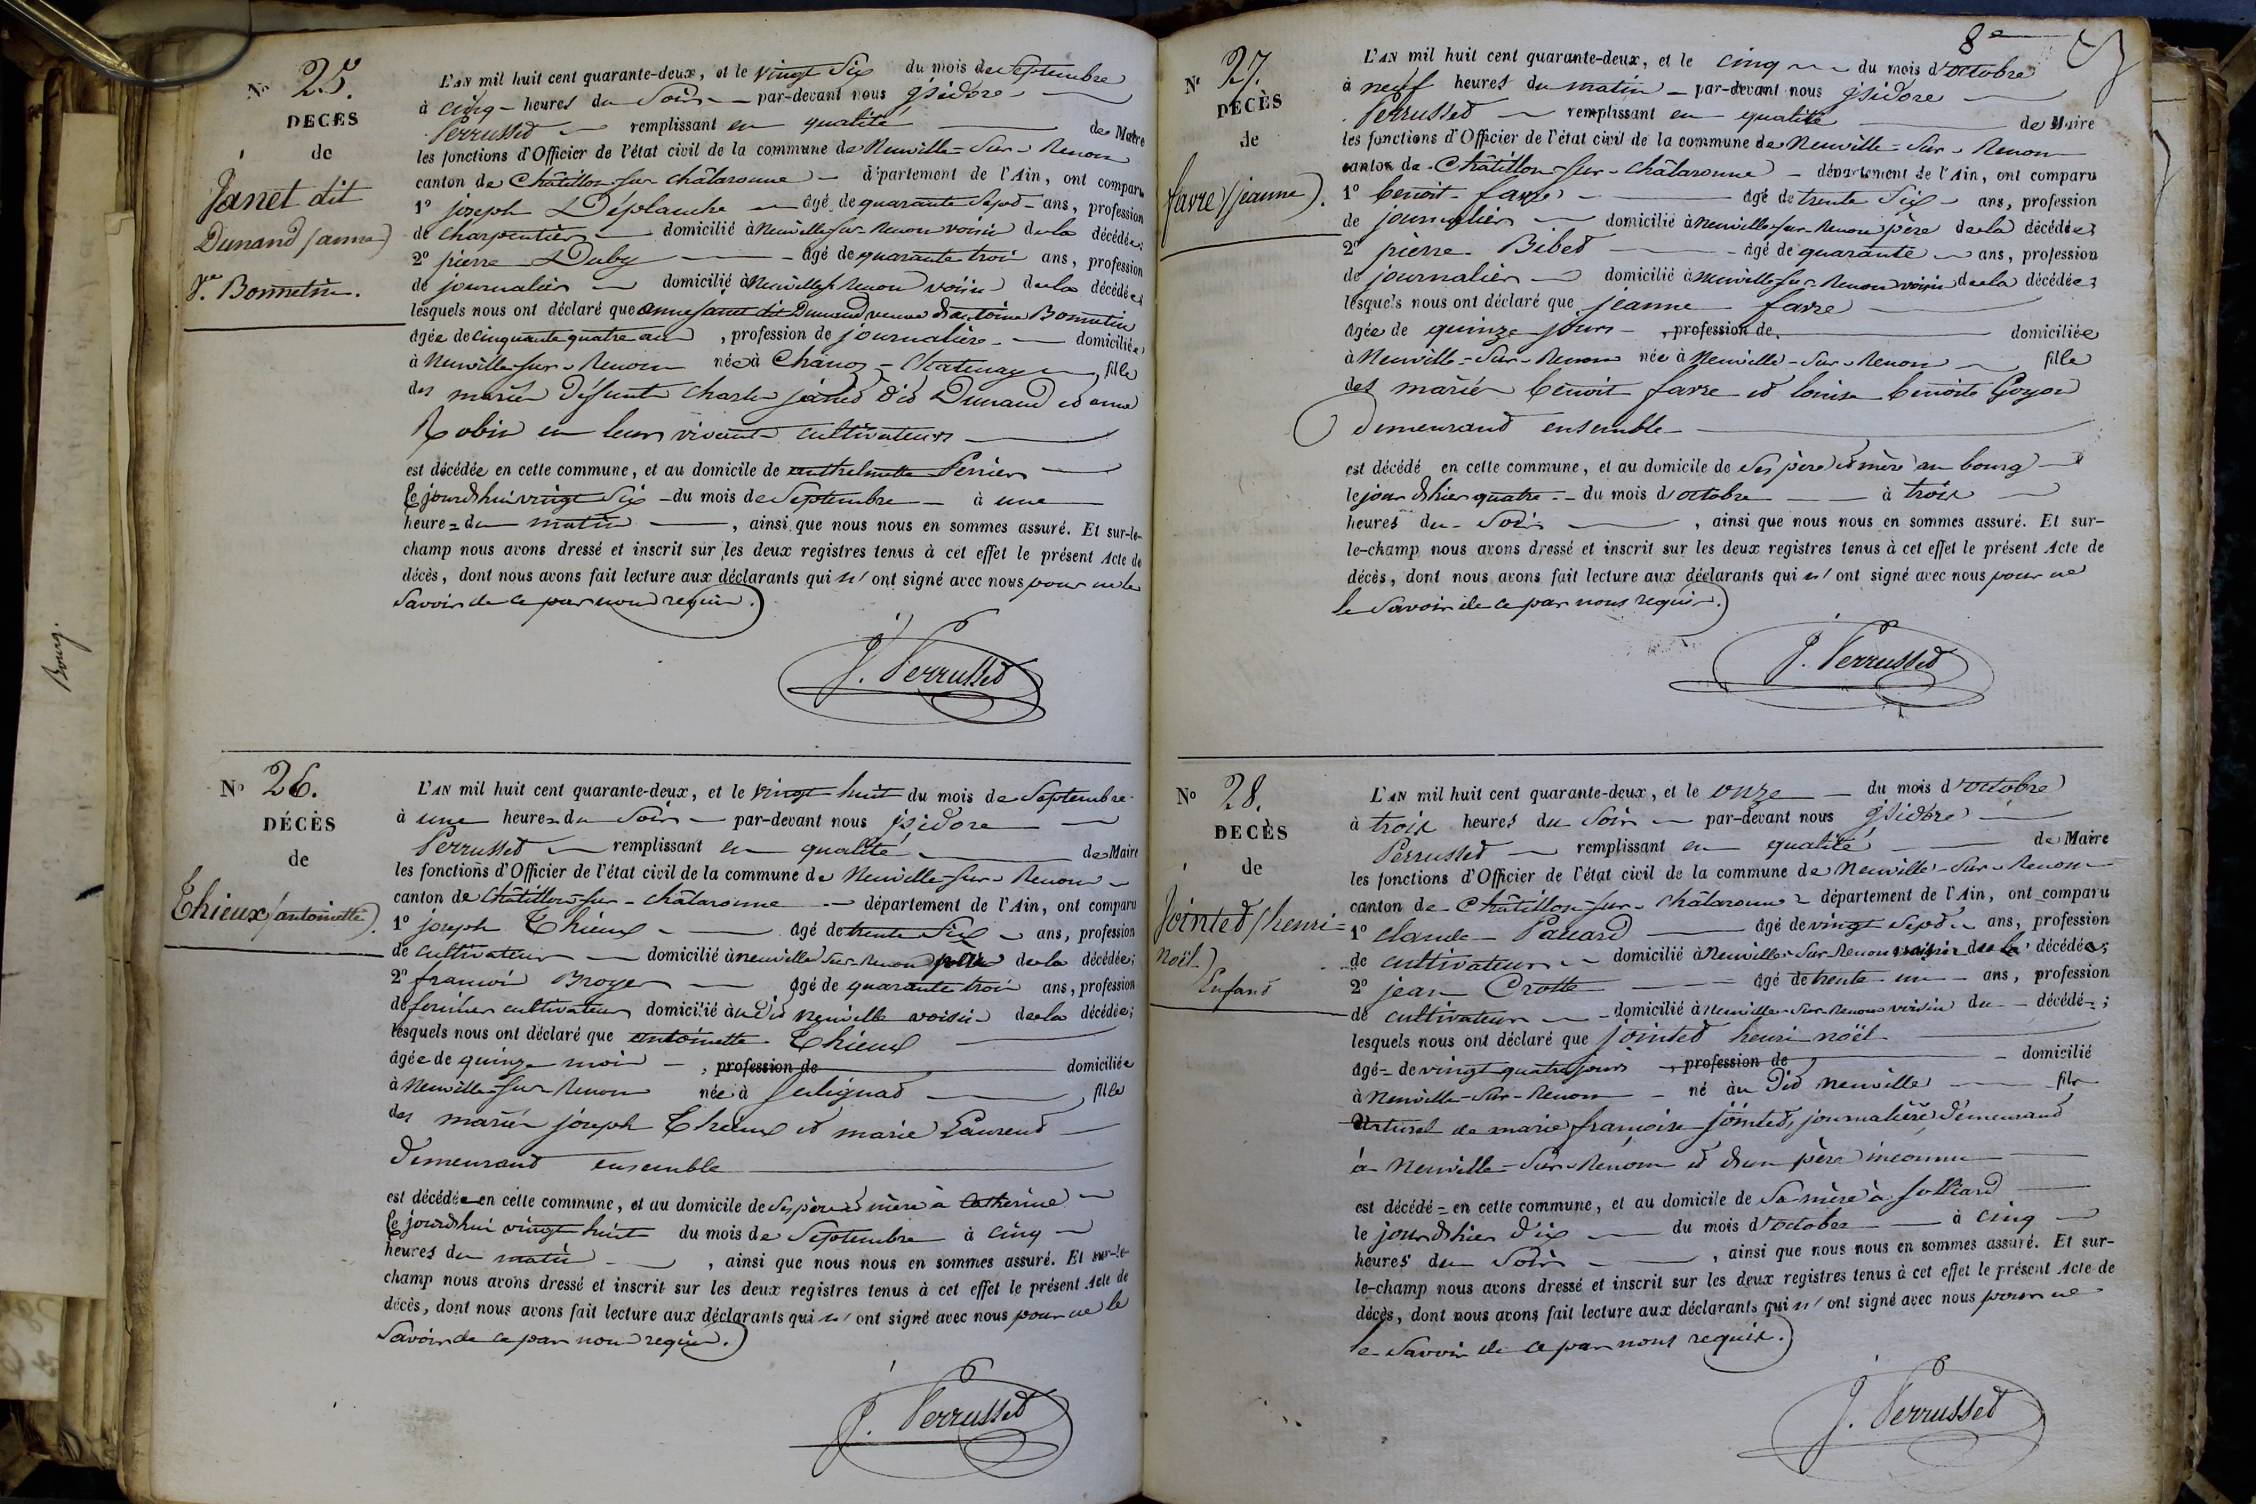 Bourg.
N° 25.
DECES
de
Janet dit
Dunand (anne)
Ve. Bonnetin.
L'AN mil huit cent quarante-deux, et le vingt Six du mois de Septembre
à cinq heures du Soir par-devant nous jsidore
Perrusset remplissant en qualité de Maire
les fonctions d'Officier de l'état civil de la commune de Neuville-Sur-Renom
canton de Châtillon-sur-châlaronne département de l'Ain, ont comparu
1° joseph Déplanche âgé de quarante Sept ans, profession
de charpentier domicilié à Neuville sur Renom voisin de la décédée;
2° pierre Duby âgé de quarante trois ans, profession
de journalier domicilié à Neuville s Renom voisin de la décédée;
lesquels nous ont déclaré que anne janet dit Dunand veuve d'antoine Bonnetin
âgée de cinquante quatre ans, profession de journalière domiciliée
à Neuville-sur-Renom née à Chanoz-Chatenay fille
des mariés défunts Charles janet dit Dunand et anne
Robin en leurs vivants cultivateurs
est décédée en cette commune, et au domicile de Perrier
le jourd'hui vingt Six du mois de Septembre à une
heure du matin, ainsi que nous nous en sommes assuré. Et sur-le-
champ nous avons dressé et inscrit sur les deux registres tenus à cet effet le présent Acte de
décès, dont nous avons fait lecture aux déclarants qui n' ont signé avec nous pour ne le
Savoir de ce par nous requis.
J. Perrusset
N° 26.
DÉCÈS
de
Thieux (antoinette).
L'AN mil huit cent quarante-deux, et le vingt huit du mois de Septembre
à une heure du Soir par-devant nous jsidore
Perrusset remplissant en qualité de Maire
les fonctions d'Officier de l'état civil de la commune de Neuville-sur-Renom
canton de Châtillon-sur-châlaronne département de l'Ain, ont comparu
1° joseph Thieux âgé de trente Six ans, profession
de cultivateur domicilié à neuville sur Renom père de la décédée;
2° françois Broyer âgé de quarante trois ans, profession
de fermier cultivateur domicilié au dit neuville voisin de la décédée;
lesquels nous ont déclaré que antoinette Thieux
âgée de quinze mois, profession de domiciliée
à Neuville-sur-Renom née à Sulignat fille
des mariés joseph Thieux et marie Laurent
demeurant ensemble
est décédée en cette commune, et au domicile de Ses père et mère à Catherine
le jourd'hui vingt huit du mois de Septembre à cinq
heures du matin, ainsi que nous nous en sommes assuré. Et sur-le-
champ nous avons dressé et inscrit sur les deux registres tenus à cet effet le présent Acte de
décès, dont nous avons fait lecture aux déclarants qui n' ont signé avec nous pour ne le
Savoir de ce par nous requis.
J. Perrusset
8e
N° 27.
DÉCÈS
de
favre (jeanne).
L'AN mil huit cent quarante-deux, et le cinq du mois d'octobre
à neuf heures du matin par-devant nous jsidore
Perrusset remplissant en qualité de Maire
les fonctions d'Officier de l'état civil de la commune de Neuville-Sur-Renom
canton de Châtillon-sur-châlaronne département de l'Ain, ont comparu
1° benoit favre âgé de trente Six ans, profession
de journalier domicilié à Neuville-sur-Renom père de la décédée;
2° pierre Bibet âgé de quarante ans, profession
de journalier domicilié à Neuville sur Renom voisin de la décédée;
lesquels nous ont déclaré que jeanne favre
âgée de quinze jours, profession de domiciliée
à Neuville-Sur-Renom née à Neuville-Sur-Renom fille
des mariés benoit favre et louise benoite Goyon
demeurant ensemble
est décédé en cette commune, et au domicile de Ses père et mère au bourg
le jour d'hier quatre du mois d'octobre à trois
heures du Soir, ainsi que nous nous en sommes assuré. Et sur-
le-champ nous avons dressé et inscrit sur les deux registres tenus à cet effet le présent Acte de
décès, dont nous avons fait lecture aux déclarants qui n' ont signé avec nous pour ne
le Savoir de ce par nous requis.
J. Perrusset
N° 28.
DECÈS
de
Jointet (henri-
noël)
Enfant
L'AN mil huit cent quarante-deux, et le onze du mois d'octobre
à trois heures du Soir par-devant nous jsidore
Perrusset remplissant en qualité de Maire
les fonctions d'Officier de l'état civil de la commune de Neuville-Sur-Renom
canton de Châtillon-sur-châlaronne département de l'Ain, ont comparu
1° claude Pauard âgé de vingt Sept ans, profession
de cultivateur domicilié à Neuville-Sur-Renom voisin de la décédée;
2° jean Crotte âgé de trente un ans, profession
de cultivateur domicilié à Neuville-Sur-Renom voisin du décédé;
lesquels nous ont déclaré que jointet henri noël
âgé de vingt quatre jours, profession de domicilié
à Neuville-Sur-Renom né au dit neuville fils
Naturel de marie françoise jointet, journalière demeurant
à Neuville-Sur-Renom et d'un père inconnu
est décédé en cette commune, et au domicile de Sa mère à
le jour d'hier dix du mois d'octobre à cinq
heures du Soir, ainsi que nous nous en sommes assuré. Et sur-
le-champ nous avons dressé et inscrit sur les deux registres tenus à cet effet le présent Acte de
décès, dont nous avons fait lecture aux déclarants qui n' ont signé avec nous pour ne
le Savoir de ce par nous requis.
J. Perrusset